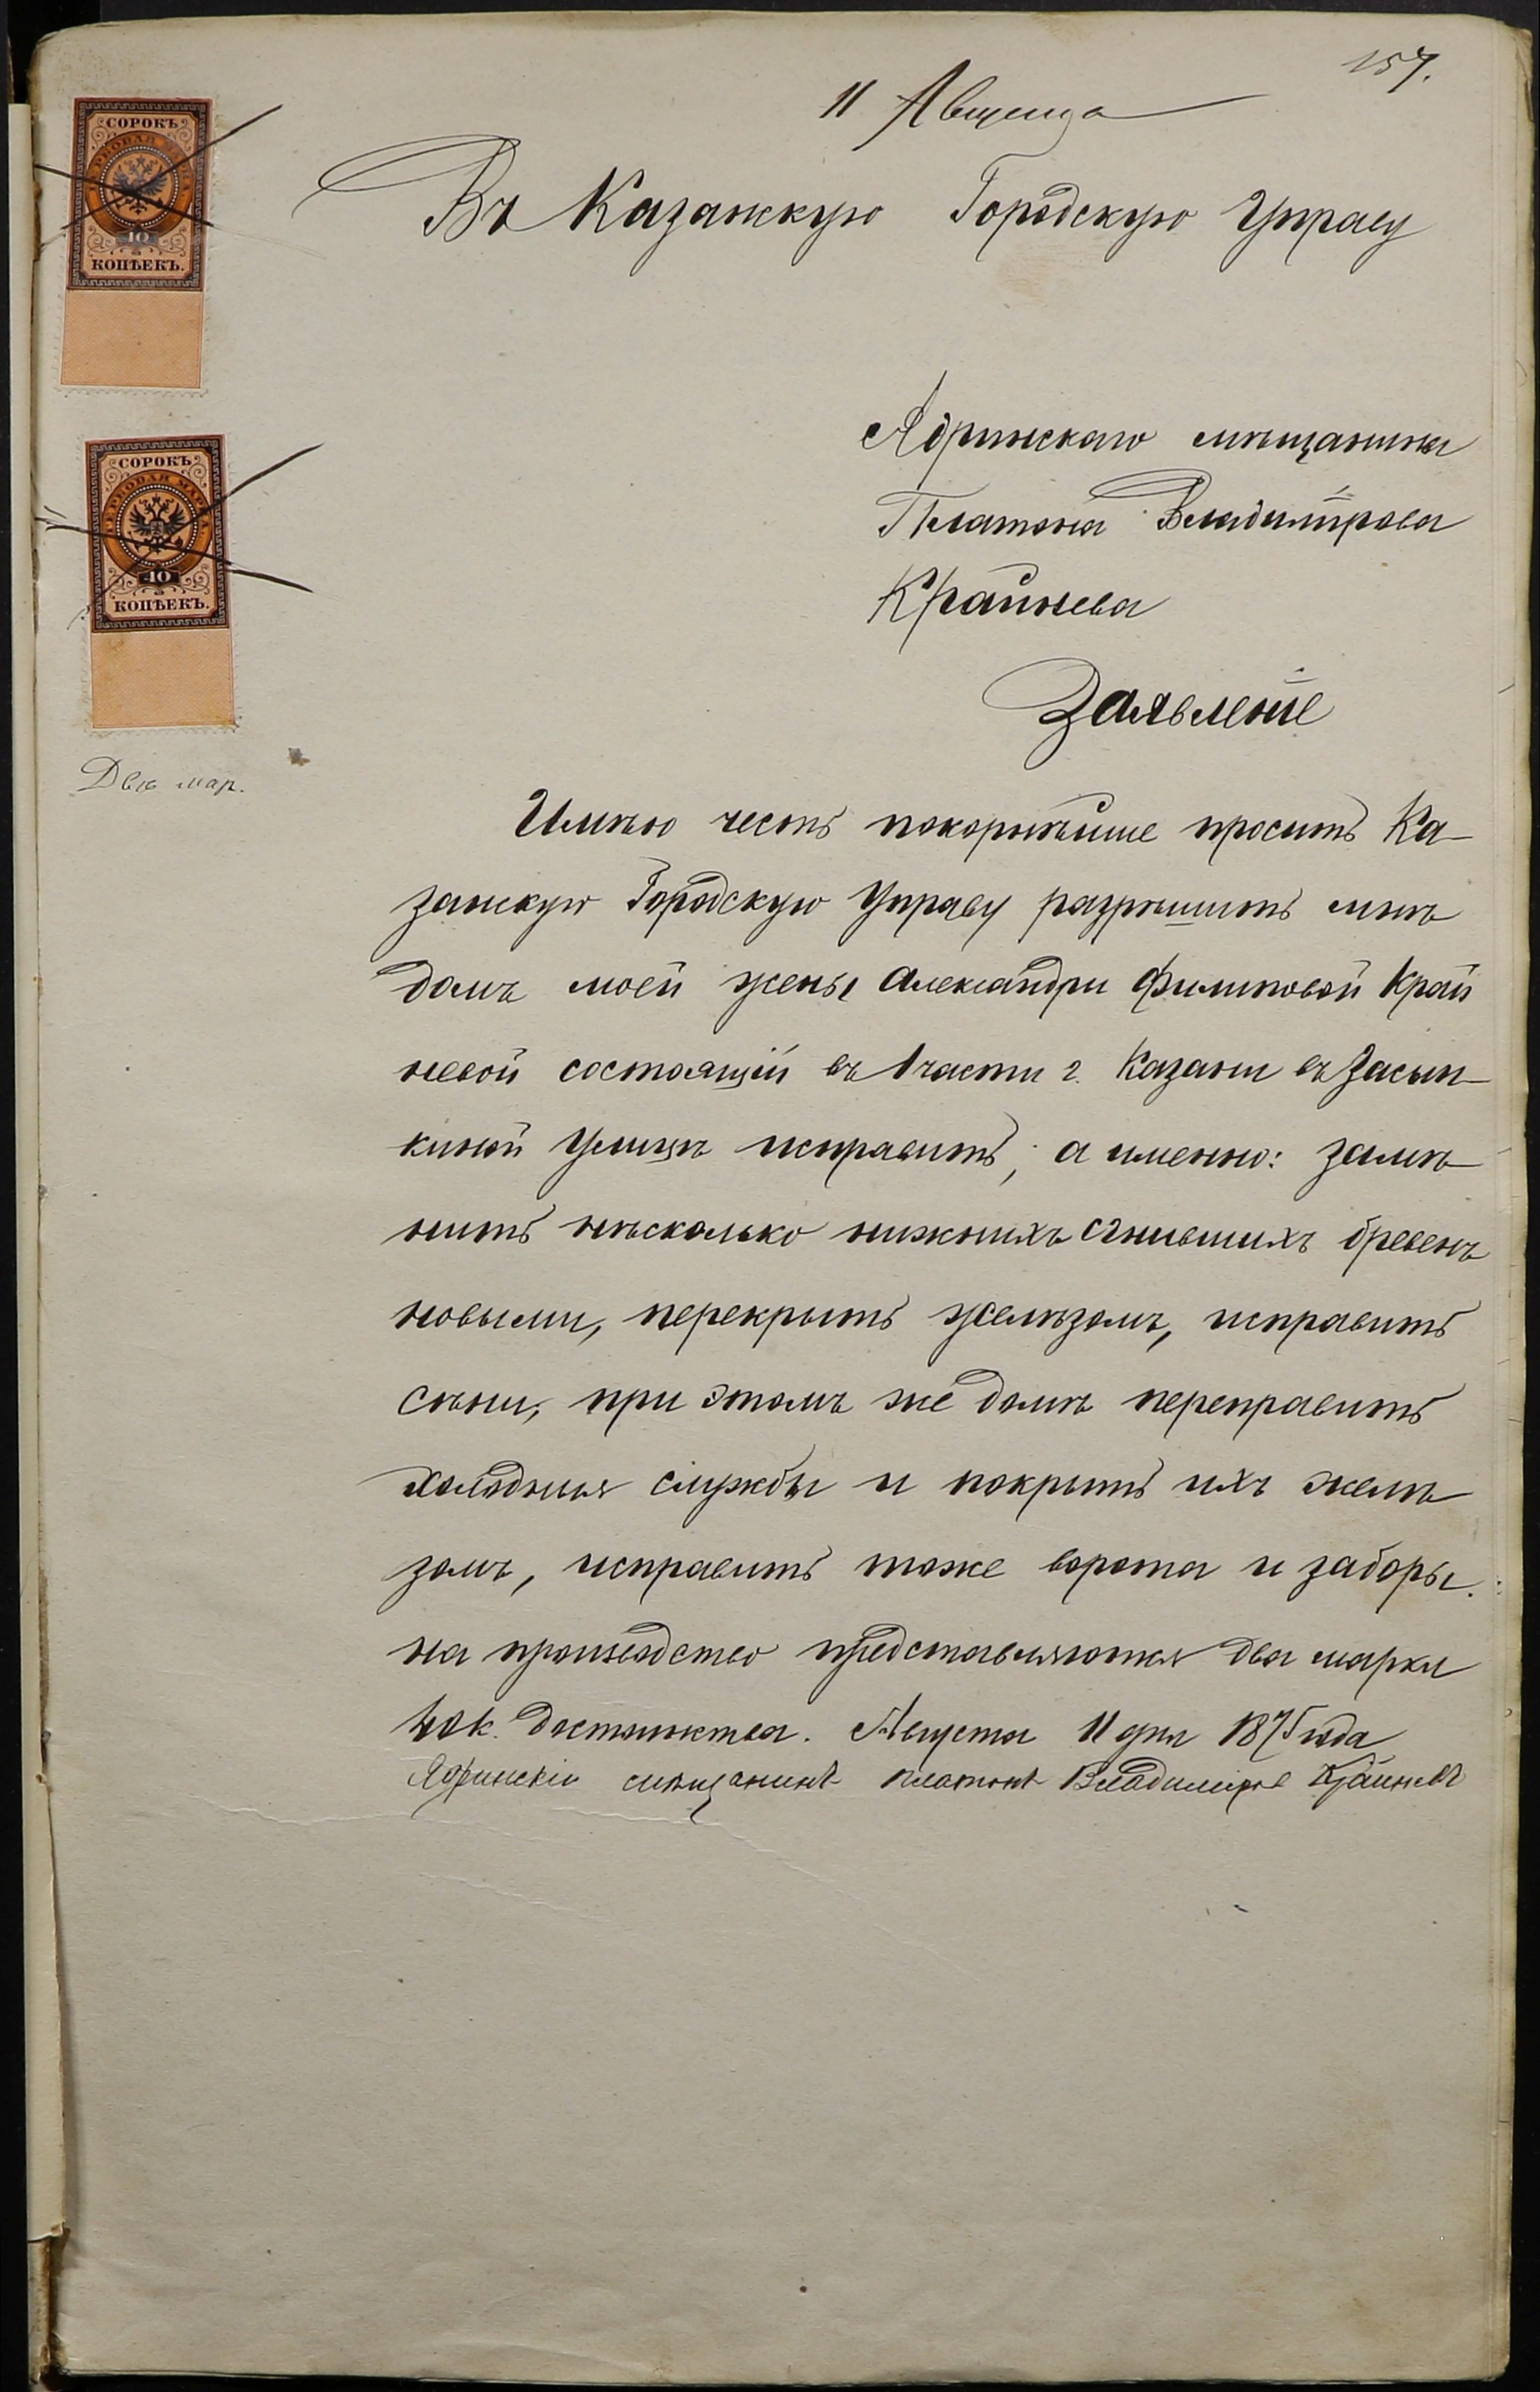 157.
11 Августа
Въ Казанскую Городскую Управу
СОРОКЪ
ГЕРБОВАЯ МАРКА
40
КОПѢЕКЪ.
Ядринскаго мѣщанина
Платона Владимірова
Крайнева
СОРОКЪ
ГЕРБОВАЯ МАРКА
40
КОПѢЕКЪ.
Заявленіе
Двѣ мар.
Имѣю честь покорнѣйше просить Ка-
занскую Городскую Управу разрѣшить мнѣ
домъ моей жены Александры Филиповой Край
невой состоящій въ 1 части г. Казани въ Засып-
киной Улицѣ исправить, а именно: замѣ-
нить нѣсколько нижнихъ сгнившихъ бревенъ
новыми, перекрыть желѣзомъ, исправить
сѣни, при этомъ же домѣ переправить
холодныя службы и покрыть ихъ желѣ-
зомъ, исправить тоже ворота и заборы.
на производство представляются два марки
40 к. достоинства. Августа 11 дня 1875 года
Ядринскій мѣщанинъ Платонъ Владиміров Крайневъ